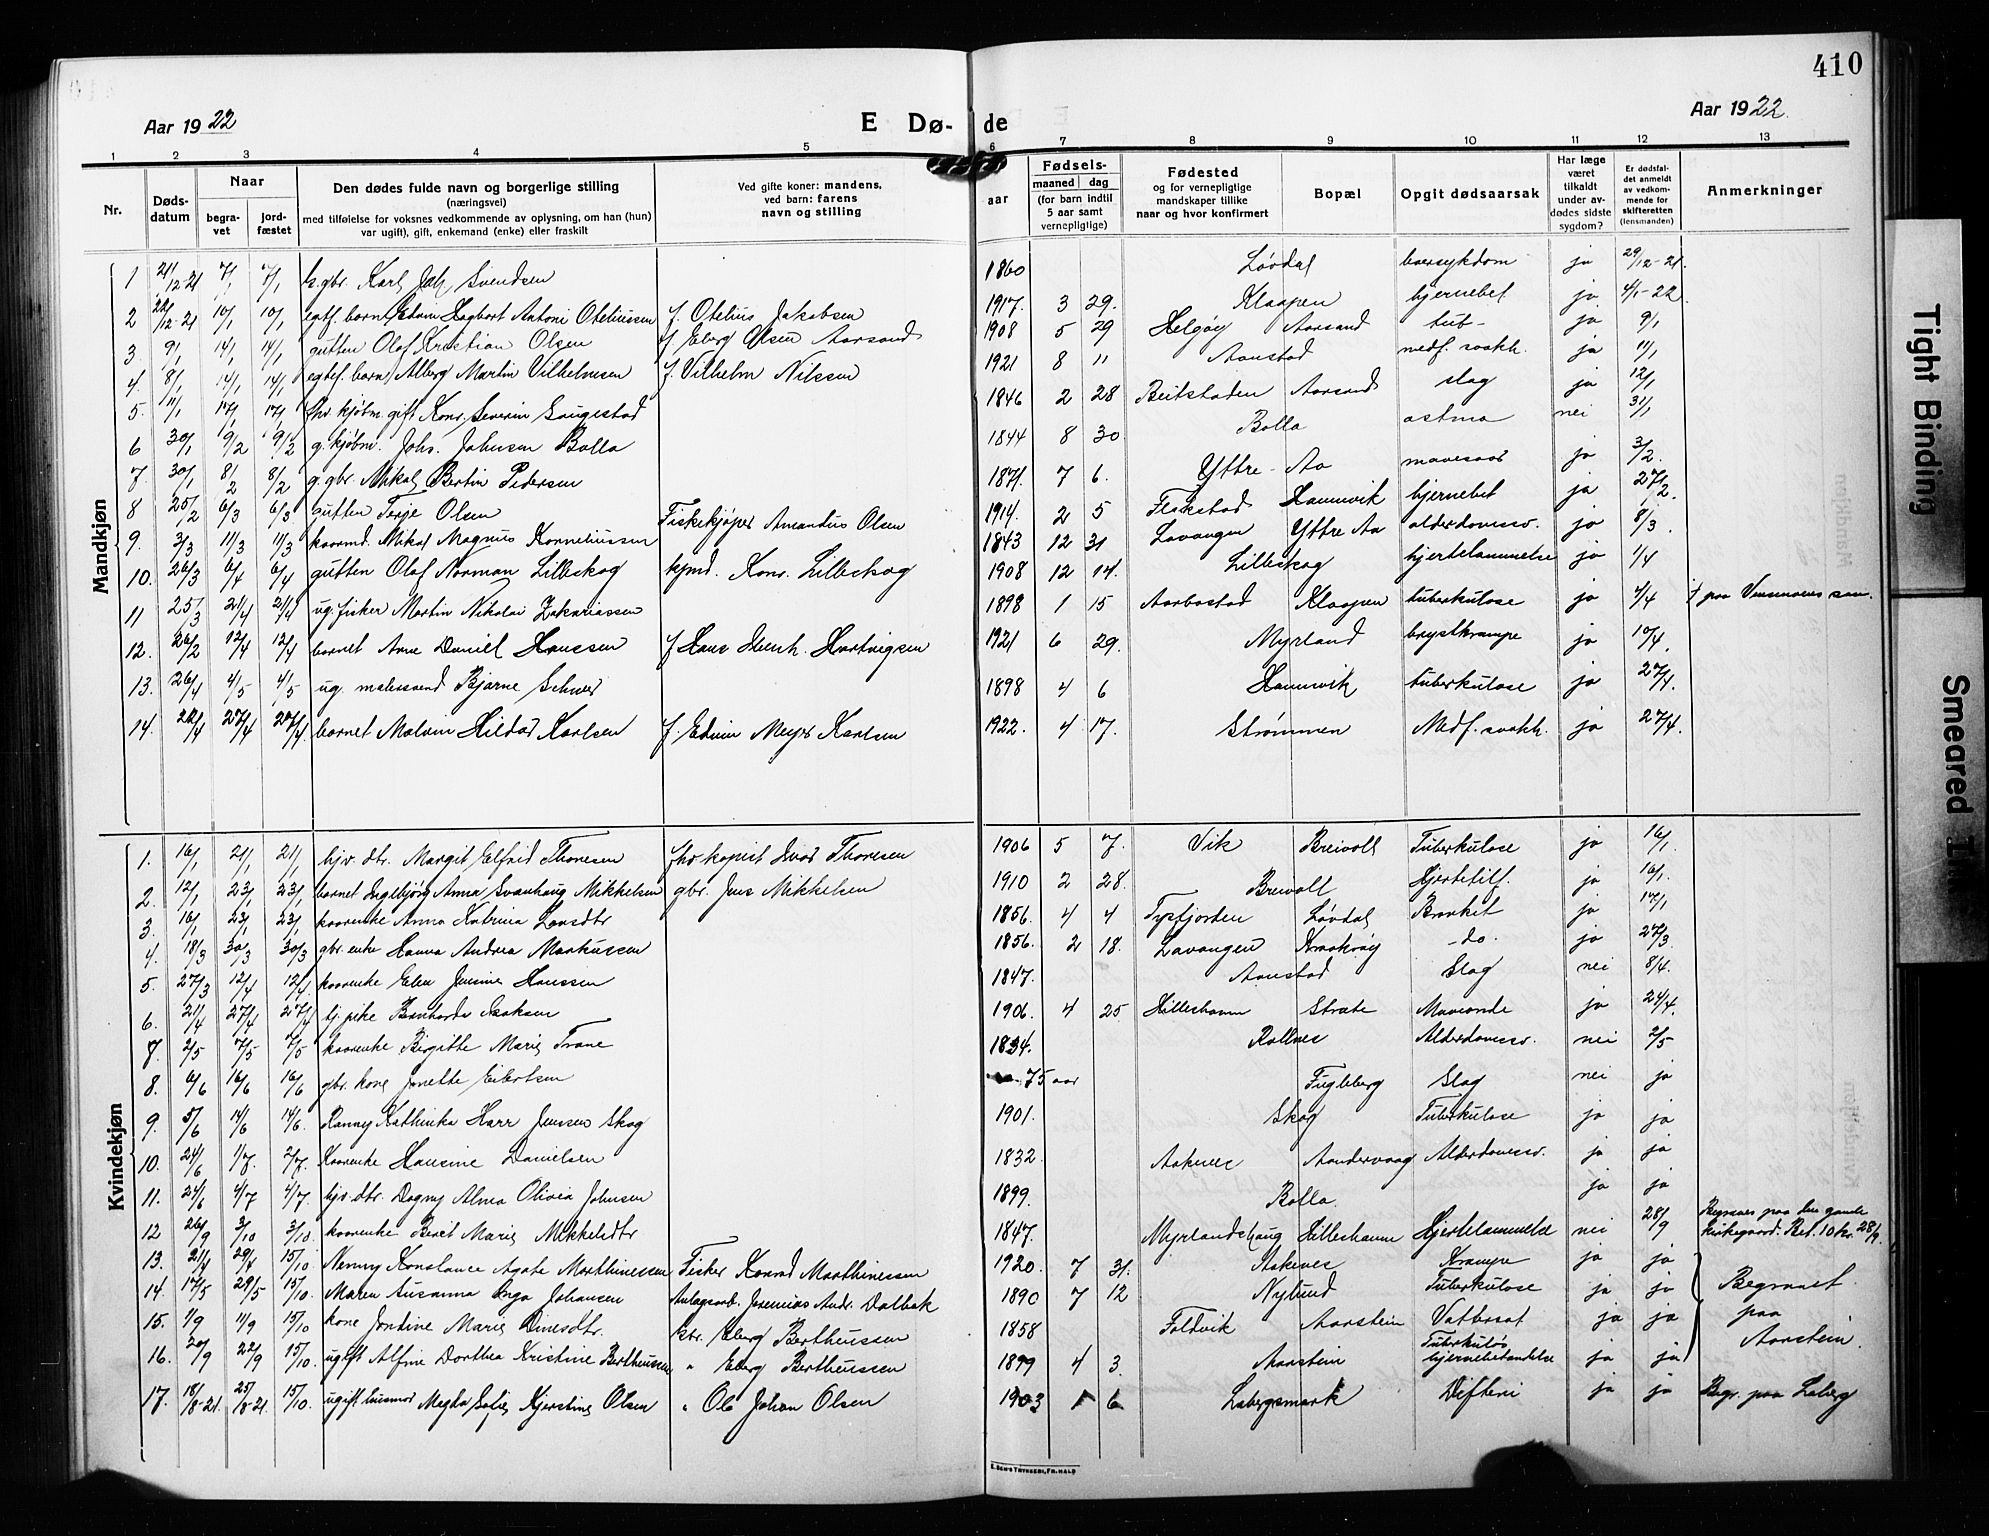 410
Aar 1922
E Dø- de
Aar 1922.
1 2 3 4 5 6 7 8 9 10 11 12 13
Nr.
Døds-
datum
Naar
begra-
vet
jord-
fæstet
Den dødes fulde navn og borgerlige stilling
(næringsvei)
med tilføielse for voksnes vedkommende av oplysning, om han (hun)
var ugift), gift, enkemand (enke) eller fraskilt
Ved gifte koner: mandens,
ved barn: farens
navn og stilling
aar
Fødsels-
maaned dag
(for barn indtil
5 aar samt
vernepligtige)
Fødested
og for vernepligtige
mandskaper tillike
naar og hvor konfirmert
Bopæl
Opgit dødsaarsak
Har læge
været
tilkaldt
under av-
dødes sidste
sygdom?
Er dødsfal-
det anmeldt
av vedkom-
mende for
skifteretten
(lensmanden)
Anmerkninger
Mandkjøn
1 21/12-21 7/1 7/1 g. gbr. Karl Joh Svendsen 1860 Løvdal ja 29/12-21.
2 22/12-21 10/1 10/1 egtf. barn Edvin Hagbart Antoni Oteliussen f. Otelius Jakobsen 1917. 3 29. Klaapen hjernebet ja 4/1-22
3. 9/1 14/1 14/1 gutten Olaf Kristian Olsen f. Eberg Olsen Aarsand 1908 5 29 Helgøy Aarsand tub- ja 9/1
4. 8/1 14/1 14/1 egtef. barn Alberg Martin Vilhelmsen f. Vilhelm Nilssen 1921 8 11 Aanstad medf. svakh. ja 11/1
5. 11/1 17/1 17/1 fhv. kjøbm. gift Kons. Severin Saugestad 1846 2 28 Beitstaden Aarsand slag ja 12/1
6 30/1 9/2 9/2 g. kjøbm. Johs. Johnsen Bolla 1844 8 30 Bolla astma nei 31/1
7 30/1 8/2 8/2 g. gbr. Mikal Bertin Pedersen 1871. 7 6. Yttre-Aa mavesaar ja 3/2.
8 25/2 6/3 6/3 gutten Terje Olsen Fiskekjøper Amandus Olsen 1914. 2 5 Flakstad Hamnvik hjernebet ja 27/2.
9. 3/3 11/3 11/3 kaarmd. Mikal Magnus Korneliussen 1843 12 31 Lavangen Yttre Aa alderdomssv. ja 8/3.
10. 26/3 6/4 6/4 gutten Olaf Norman Lilleskog kjmd. Kons. Lilleskog 1908 12 14. Lilleskog hjertelammelse ja 1/4
11 25/3 21/4 21/4 ug. fisker Martin Nikolai Zakariassen 1898 1 15 Aarbostad Klaapen tuberkulose ja 4/4 † paa Vensmoens san.
12. 26/2 12/4 12/4 barnet Arne Daniel Hanssen f Hans Henrh. Hartvigsen 1921 6 29. Myrland brystkrampe ja 10/4.
13. 26/4 4/5 4/5 ug. malersvend Bjarne Schwer 1898 4 6 Hamnvik tuberkulose ja 27/4.
14. 22/4 27/4 27/4 barnet Malvin Hildor Karlsen f. Edvin Meyer Karlsen 1922. 4 17. Strømmen Medf. svakh. ja 27/4.
Kvindekjøn
1. 16/1 21/1 21/1 hjv. dtr. Margit Elfrid Thoresen fhv kopist Ivar Thoresen 1906 5 7. Vik Breivoll Tuberkulose ja 16/1
2. 12/1 23/1 23/1 barnet Ingebjørg Anna Svanhaug Mikkelsen gbr. Jens Mikkelsen 1910 2 28. Breivoll Hjertetilf. ja 16/1.
3. 16/1 23/1 23/1 kaarenke Anna Katrina Larsdtr 1856. 4 4 Tysfjorden Løvdal Bronkit ja 17/1
4. 18/3 30/3 30/3 gbr. enke Hanna Andrea Markussen 1856. 2 18. Lavangen Kraakrøy -do- ja 27/3
5. 27/3 12/4 12/4 kaarenke Elen Jensine Hanssen 1847. Aanstad Slag nei 8/4.
6. 21/4 27/4 27/4 tj. pike Bernharda Isaksen 1906. 4 25 Hilleshamn Strate Maveonde ja 24/4.
7. 2/5 7/5 7/5 kaarenke Birgitte Marie Trane 1834. Rollnes Alderdomssv. nei 2/5
8. 6/6 16/6 16/6 gbr. kone Jonette Eibertsen 75 aar Fugleberg Slag nei ja
9. 5/6 14/6 14/6 Ranny Kathinka Harr Jensen Skog 1901. Skog Tuberkulose ja ja
10. 24/6 1/7. 2/7. Kaarenke Hansine Danielsen 1832. Aakenes Aandervaag Alderdomssv. ja ja
11. 24/6 4/7 4/7 hjv. dtr. Dagny Alma Olivia Johnsen 1899. Bolla ja ja
12 26/9 3/10 3/10 kaarenke Berit Marie Mikkelsdtr 1847. Myrlandshaug Hilleshamn Hjertelammelse nei 28/9 Begraves paa den gamle
kirkegaard. Bet. 10 kr. 28/9.
13. 21/4 29/4 15/10 Nenny Konstance Agate Marthinessen Fisker Konrad Marthinessen 1920. 7 31. Aakenes Krampe ja ja
14. 17/5 29/5 15/10. Maren Susanna Inga Johansen Anlagsarb. Jeremias Andr. Dalbak 1890 7 12 Nylund Tuberkulose ja ja Begravet
15. 1/9 11/9 15/10 kone Jordine Marie Enesdtr. gbr. Eberg Bertheussen 1858 Foldvik Aarstein Vattersot ja ja paa
16. 20/9 22/9 15/10. ugift Alfine Dorthea Kristine Bertheussen " Eberg Bertheussen 1899 4 3 Aarstein Tuberkuløs
hjernebetændelse ja ja Aarstein.
17. 18/8-21. 25/8-21. 15/10. ugift husmor Megda Sofie Kjerstine Olsen " Ole Johan Olsen 1903 1 6 Labergsmark Difteri ja ja Begr. paa Laberg
E. SEM'S TRYKKERI, FR.HALD
Tight Binding
Smeared Ink